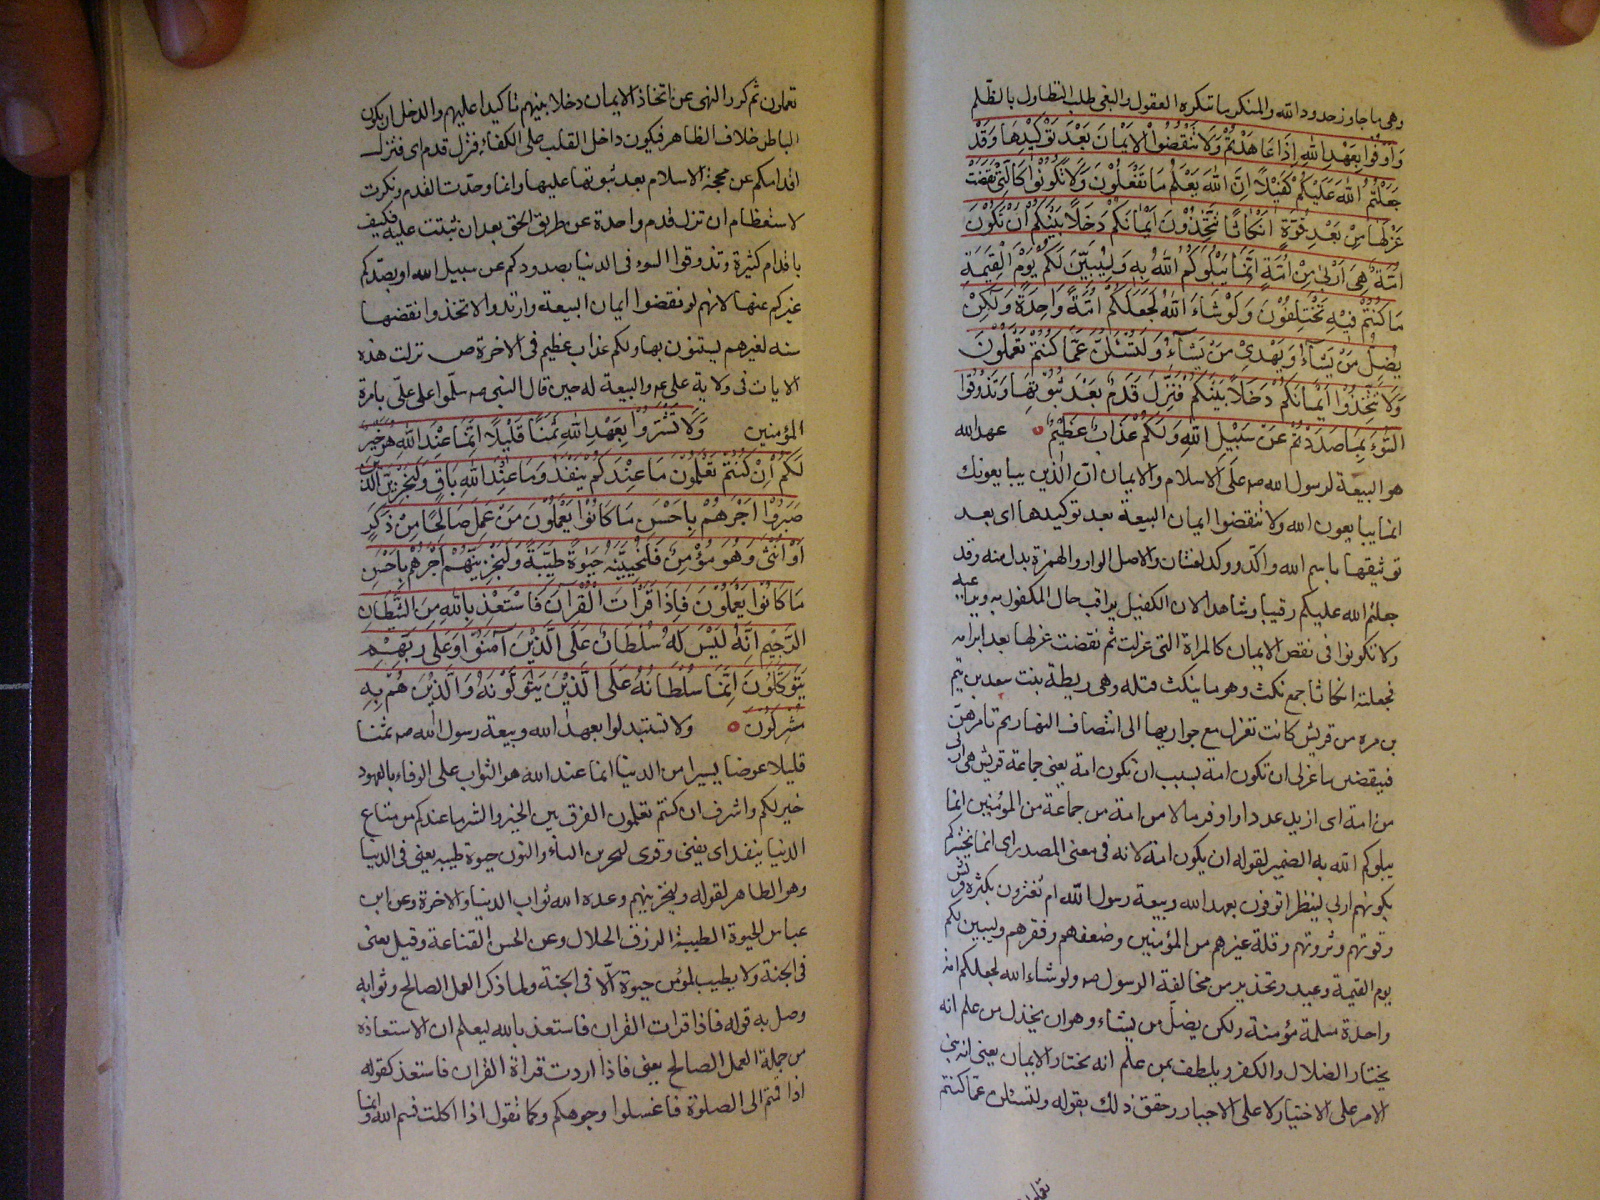 وهى ما جاوز حدود الله والمنكر ما تنكره العقول والبغى طلب التطاول بالظلم
وَاَوْفُوا بِعَهْدِ اللهِ اِذَا عَاهَدْتُمْ وَلَا تَنْقُضُوا الْاَيْمَانَ بَعْدَ تَوْكِيْدِهَا وَقَدْ
جَعَلْتُمُ اللهَ عَلَيْكُمْ كَفِيْلًا اِنَّ اللهَ يَعْلَمُ مَا تَفْعَلُوْنَ وَلَا تَكُوْنُوْا كَالَّتِيْ نَقَضَتْ
غَزْلَهَا مِنْ بَعْدِ قُوَّةٍ اَنْكَاثًا تَتَّخِذُوْنَ اَيْمَانَكُمْ دَخَلًا بَيْنَكُمْ اَنْ تَكُوْنَ
اُمَّةٌ هِيَ اَرْبٰى مِنْ اُمَّةٍ اِنَّمَا يَبْلُوْكُمُ اللهُ بِهِ وَلَيُبَيِّنَنَّ لَكُمْ يَوْمَ الْقِيٰمَةِ
مَا كُنْتُمْ فِيْهِ تَخْتَلِفُوْنَ وَلَوْ شَاءَ اللهُ لَجَعَلَكُمْ اُمَّةً وَاحِدَةً وَلٰكِنْ
يُضِلُّ مَنْ يَشَآءُ وَيَهْدِيْ مَنْ يَشَآءُ وَلَتُسْئَلُنَّ عَمَّا كُنْتُمْ تَعْمَلُوْنَ
وَلَا تَتَّخِذُوْا اَيْمَانَكُمْ دَخَلًا بَيْنَكُمْ فَتَزِلَّ قَدَمٌ بَعْدَ ثُبُوْتِهَا وَتَذُوْقُوا
السُّوْءَ بِمَا صَدَدْتُمْ عَنْ سَبِيْلِ اللهِ وَلَكُمْ عَذَابٌ عَظِيْمٌ عهد الله
هو البيعة لرسول الله صہ على الاسلام والايمان ان الذين يبايعونك
انما يبايعون الله ولا تنقضوا ايمان البيعة بعد توكيدها اى بعد
توثيقها باسم الله واكّد ووكد لغتان والاصل الواو والهمزة بدل منه وقد
جعلتم الله عليكم رقيبا وشاهدا لان الكفيل يراقب حال المكفول به
ولا تكونوا فى نقض الايمان كالمراة التى غزلت ثم نقضت غزلها بعد ابرامه
فجعلته انكاثا جمع نكث وهو ما ينكث فتله وهى ريطة بنت سعد بن تيم
بن مره من قريش كانت تغزل مع جواريها الى انتصاف النهار ثم تامرهنّ
فينقضن ما غزلن ان تكون امة بسبب ان تكون امة يعنى جماعة قريش هى اربى
من امة اى ازيد عددا واوفر مالا من امة من جماعة من المؤمنين انما
يبلوكم الله به الضمير لقوله ان يكون امة لانه فى معنى المصدر اى انما يختبركم
بكونهم اربى لينظر اتوفون بعهد الله وبيعة رسول الله ام تغترون بكثرة قريش
وقوتهم وثروتهم وقلة غيرهم من المؤمنين وضعفهم وفقرهم وليبين لكم
يوم القيمة وعيد وتحذير من مخالفة الرسول صہ ولو شاء الله لجعلكم امة
واحدة مسلمة مؤمنة ولكن يضلّ من يشاء وهو ان يخذل من علم انه
يختار الضلال والكفر ويلطف بمن علم انه يختار الايمان يعنى انه بنى
الامر على الاختيار لا على الاجبار وحقق ذلك بقوله ولتسئلن عمّا كنتم
تعملون
تعملون ثم كرر النهى عن اتخاذ الايمان دخلا بينهم تاكيدا عليهم والدخل ان يكون
الباطن خلاف الظاهر فيكون داخل القلب على الكفر فتزل قدم اى فتزل
اقدامكم عن محجة الاسلام بعد ثبوتها عليها وانما وحّدت القدم ونكرت
لاستعظام ان تزل قدم واحدة عن طريق الحق بعد ان ثبتت عليه فكيف
باقدام كثيرة وتذوقوا السوء فى الدنيا بصدودكم عن سبيل الله او بصدّكم
غيركم عنها لانهم لو نقضوا ايمان البيعة وارتدوا لاتخذوا نقضها
سنه لغيرهم يستنون بها ولكم عذاب عظيم فى الاخرة ص نزلت هذه
الايات فى ولاية على عم والبيعة له حين قال النبى صہ سلّموا على علىّ بامرة
المؤمنين وَلَا تَشْتَرُوْا بِعَهْدِ اللهِ ثَمَنًا قَلِيْلًا اِنَّمَا عِنْدَ اللهِ هُوَ خَيْرٌ
لَكُمْ اِنْ كُنْتُمْ تَعْلَمُوْنَ مَا عِنْدَكُمْ يَنْفَدُ وَمَا عِنْدَ اللهِ بَاقٍ وَلَنَجْزِيَنَّ الَّذِيْنَ
صَبَرُوْا اَجْرَهُمْ بِاَحْسَنِ مَا كَانُوْا يَعْمَلُوْنَ مَنْ عَمِلَ صَالِحًا مِنْ ذَكَرٍ
اَوْ اُنْثٰى وَهُوَ مُؤْمِنٌ فَلَنُحْيِيَنَّهُ حَيٰوةً طَيِّبَةً وَلَنَجْزِيَنَّهُمْ اَجْرَهُمْ بِاَحْسَنِ
مَا كَانُوْا يَعْمَلُوْنَ فَاِذَا قَرَأْتَ الْقُرْاٰنَ فَاسْتَعِذْ بِاللهِ مِنَ الشَّيْطَانِ
الرَّجِيْمِ اِنَّهُ لَيْسَ لَهُ سُلْطَانٌ عَلَى الَّذِيْنَ آمَنُوْا وَعَلٰى رَبِّهِمْ
يَتَوَكَّلُوْنَ اِنَّمَا سُلْطَانُهُ عَلَى الَّذِيْنَ يَتَوَلَّوْنَهُ وَالَّذِيْنَ هُمْ بِهِ
مُشْرِكُوْنَ ولا تستبدلوا بعهد الله وبيعة رسول الله صہ ثمنا
قليلا عوضا يسيرا من الدنيا انما عند الله هو الثواب على الوفاء بالعهود
خير لكم واشرف ان كنتم تعلمون الفرق بين الخير والشر ما عندكم من متاع
الدنيا ينفد اى يفنى وقرى لنجزين الياء والنون حيوة طيبه يعنى فى الدنيا
وهو الظاهر لقوله ولنجزينهم وعده الله ثواب الدنيا والاخرة وعن ابن
عباس الحيوة الطيبة الرزق الحلال وعن الحسن القناعة وقيل يعنى
فى الجنة ولا يطيب لمؤمن حيوة الّا فى الجنة ولما ذكر العمل الصالح وثوابه
وصل به قوله فاذا قرات القران فاستعذ بالله ليعلم ان الاستعاذه
من جملة العمل الصالح يعنى فاذا اردت قراة القران فاستعذ كقوله
اذا قمتم الى الصلوة فاغسلوا وجوهكم وكما تقول اذا اكلت فسم الله وانما